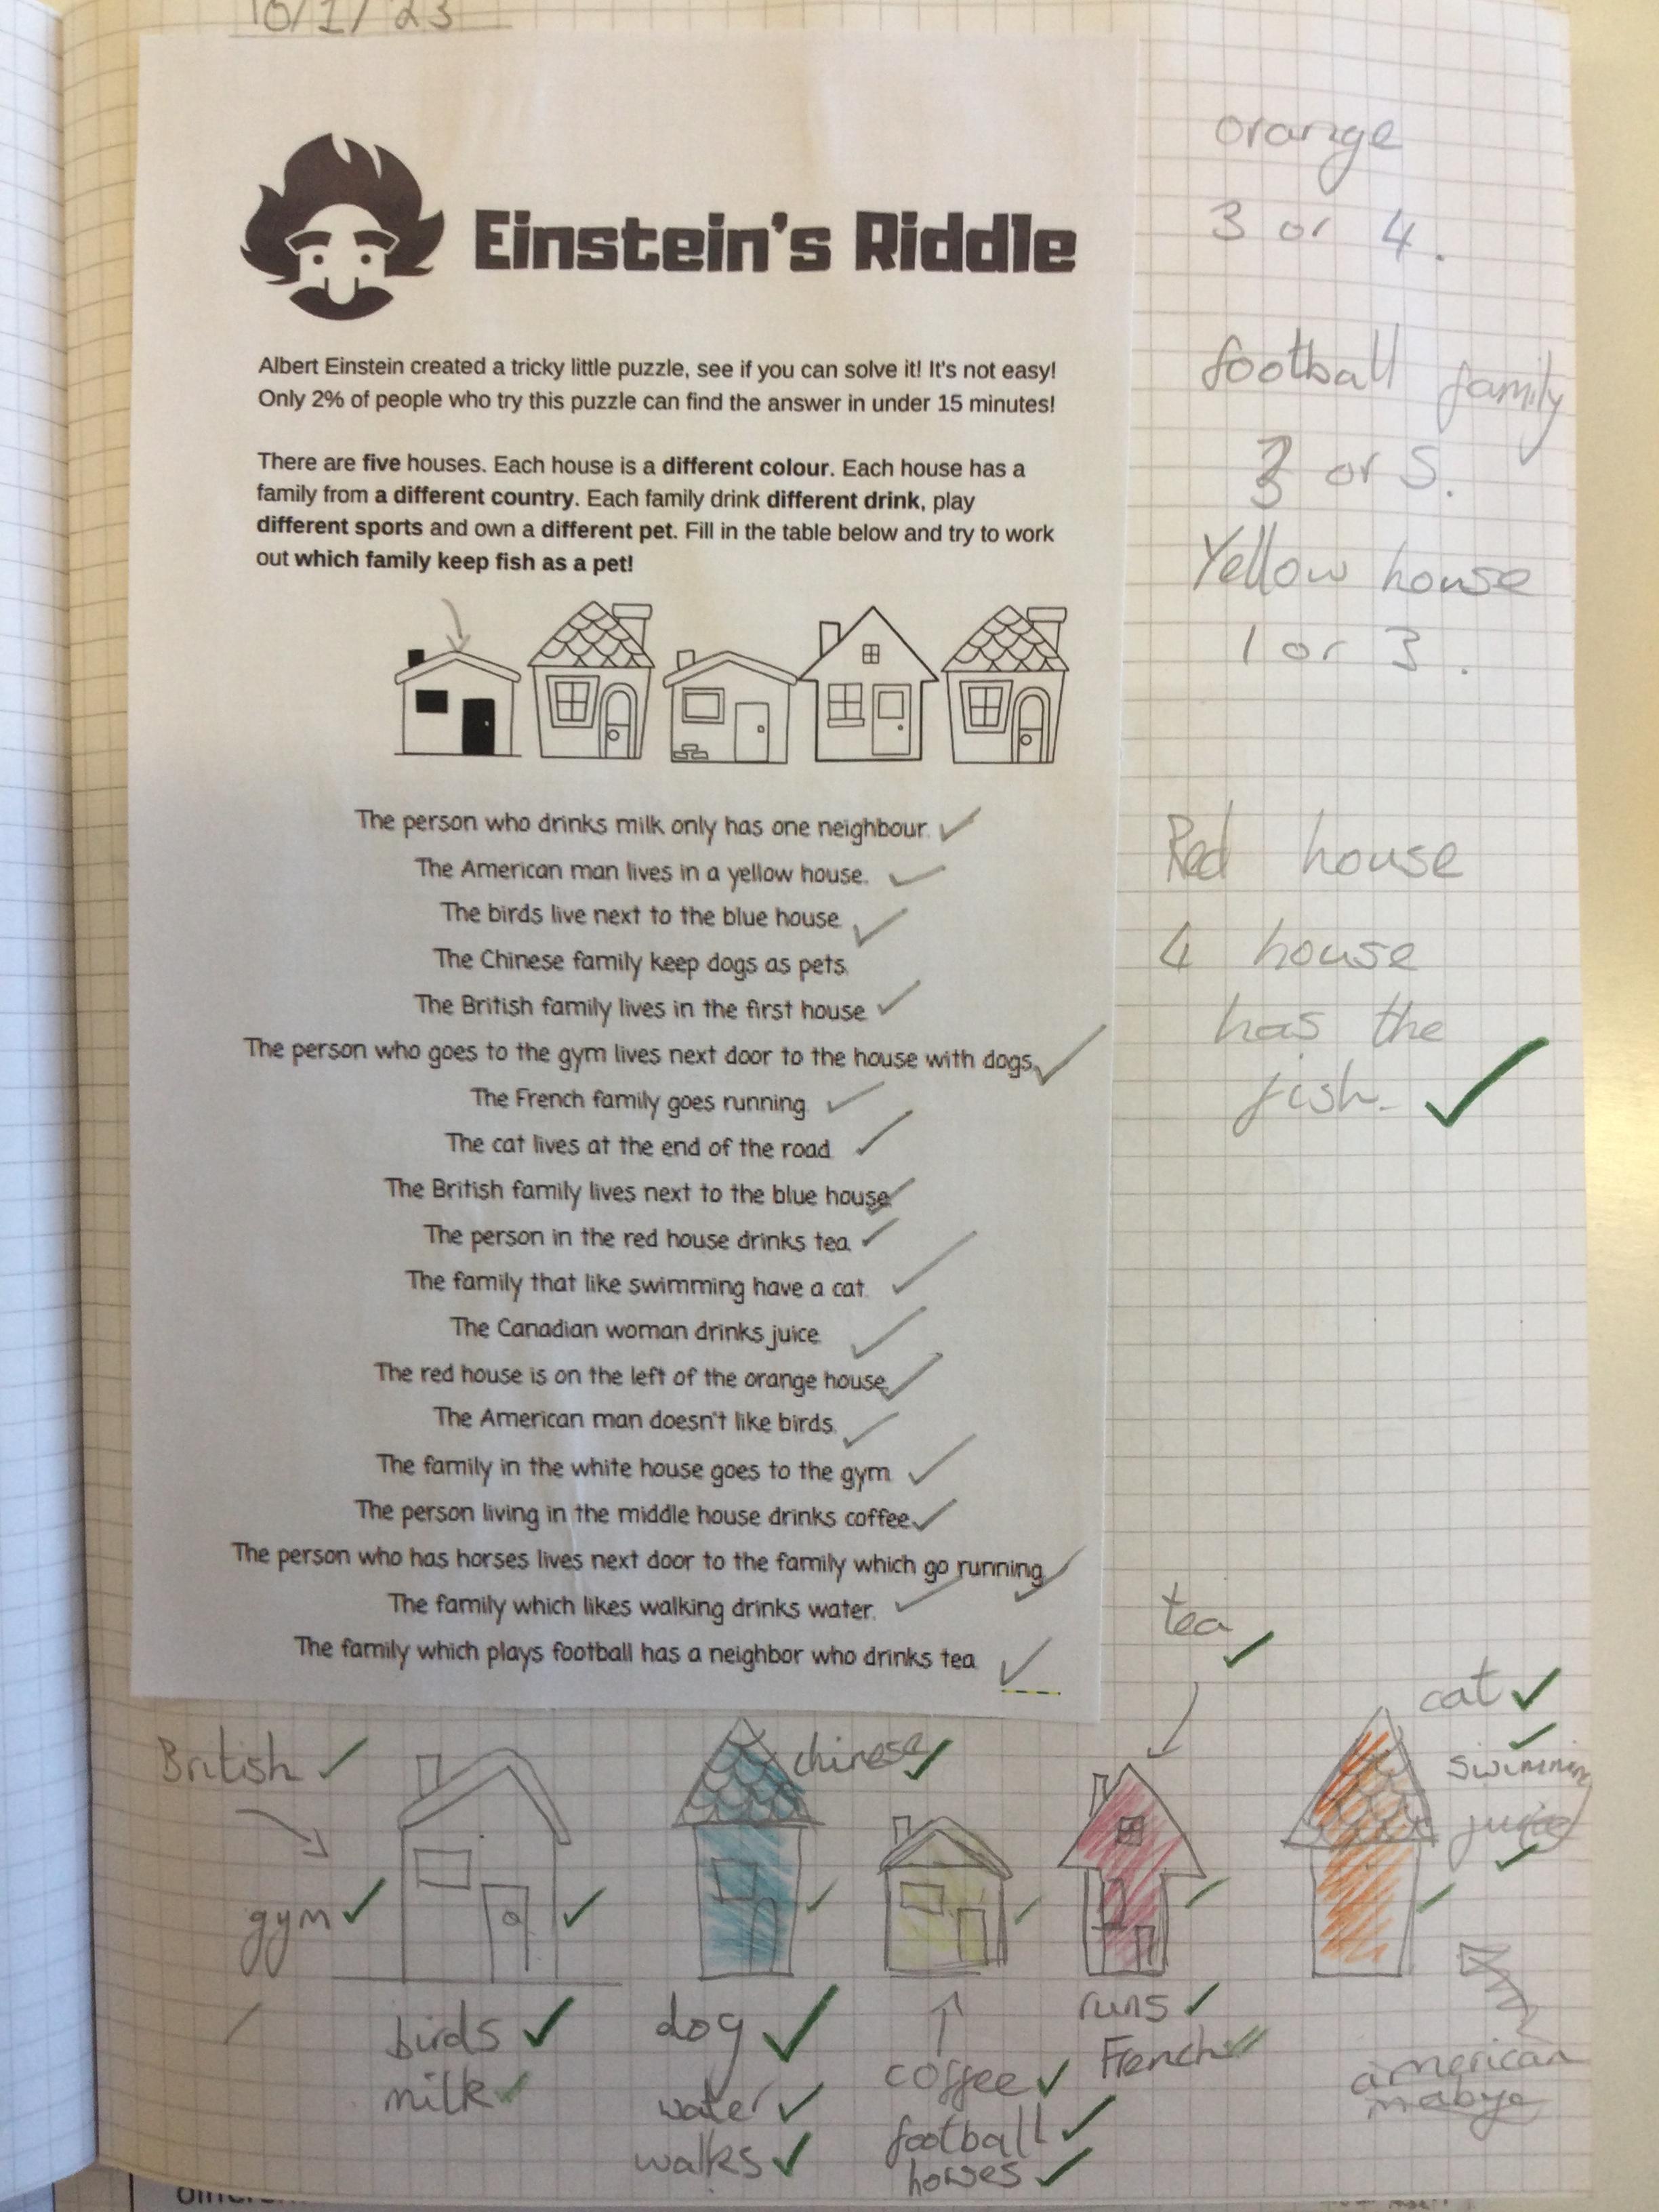 10/1/23
Einstein's Riddle
Albert Einstein created a tricky little puzzle, see if you can solve it! It's not easy!
Only 2% of people who try this puzzle can find the answer in under 15 minutes!
There are five houses. Each house is a different colour. Each house has a
family from a different country. Each family drink different drink, play
different sports and own a different pet. Fill in the table below and try to work
out which family keep fish as a pet!
The person who drinks milk only has one neighbour.
The American man lives in a yellow house.
The birds live next to the blue house.
The Chinese family keep dogs as pets.
The British family lives in the first house
The person who goes to the gym lives next door to the house with dogs.
The French family goes running.
The cat lives at the end of the road.
The British family lives next to the blue house.
The person in the red house drinks tea.
The family that like swimming have a cat.
The Canadian woman drinks juice.
The red house is on the left of the orange house.
The American man doesn't like birds.
The family in the white house goes to the gym.
The person living in the middle house drinks coffee.
The person who has horses lives next door to the family which go running.
The family which likes walking drinks water.
The family which plays football has a neighbor who drinks tea.
orange
3 or 4.
football family
3 or 5.
Yellow house
1 or 3.
Red house
4 house
has the
fish.
tea
cat
British
chinese
swimming
juice
gym
birds
milk
dog
water
walks
coffee
football
horses
runs
French
american
mabye